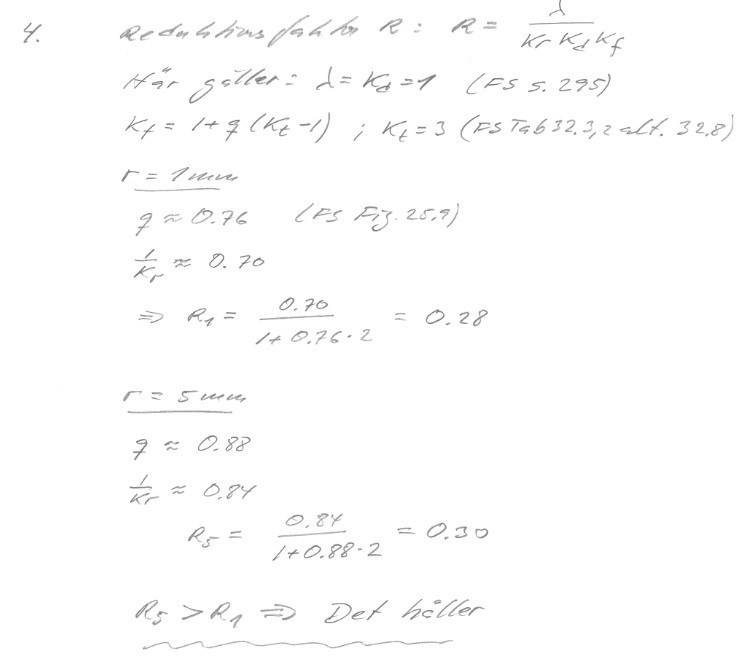 4. Reduktionsfaktor R: R = λ / (Kr Kd Kf)
Här gäller: λ = Kd = 1 (FS s. 295)
Kf = 1 + q (Kt - 1) ; Kt = 3 (FS Tab 32.3, 2 alt. 32.8)
r = 1 mm
q ≈ 0.76 (FS Fig. 25.9)
1/Kr ≈ 0.70
⇒ R1 = 0.70 / (1 + 0.76 · 2) = 0.28
r = 5 mm
q ≈ 0.88
1/Kr ≈ 0.84
R5 = 0.84 / (1 + 0.88 · 2) = 0.30
R5 > R1 ⇒ Det håller